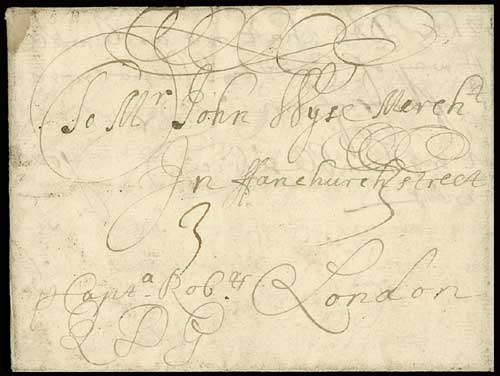 To Mr. John Wyse Mercht
In ffanchurch street
3
p Capta. Robts London
Q D G